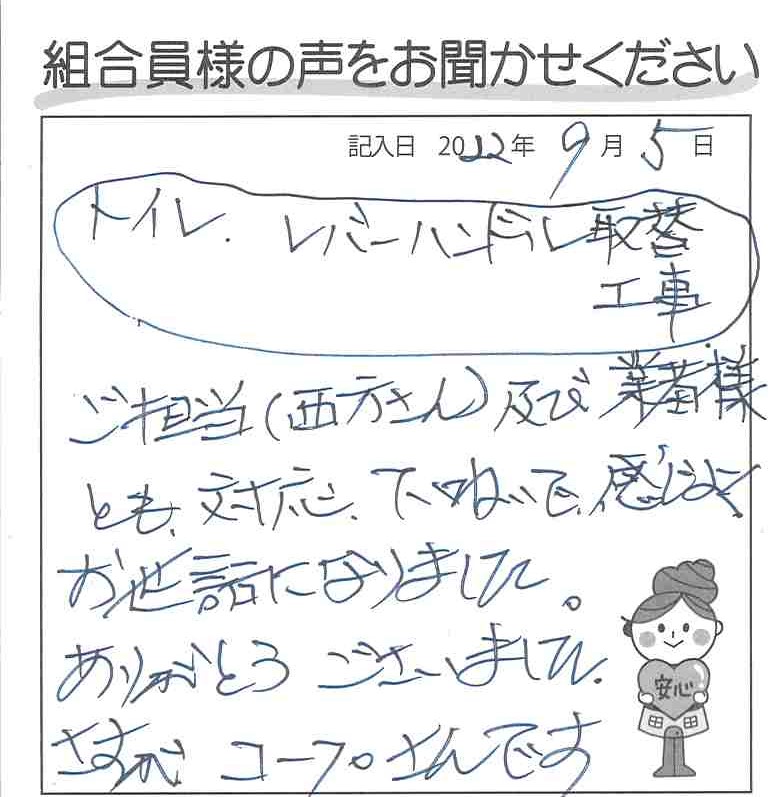 組合員様の声をお聞かせください
記入日 2022年 9月 5日
トイレ. レバーハンドル取替
工事
ご担当(西方さん)及び業者様
とも、対応、ていねいで、感じよく
お世話になりました。
ありがとう ございました.
さすが コープさんです
安心